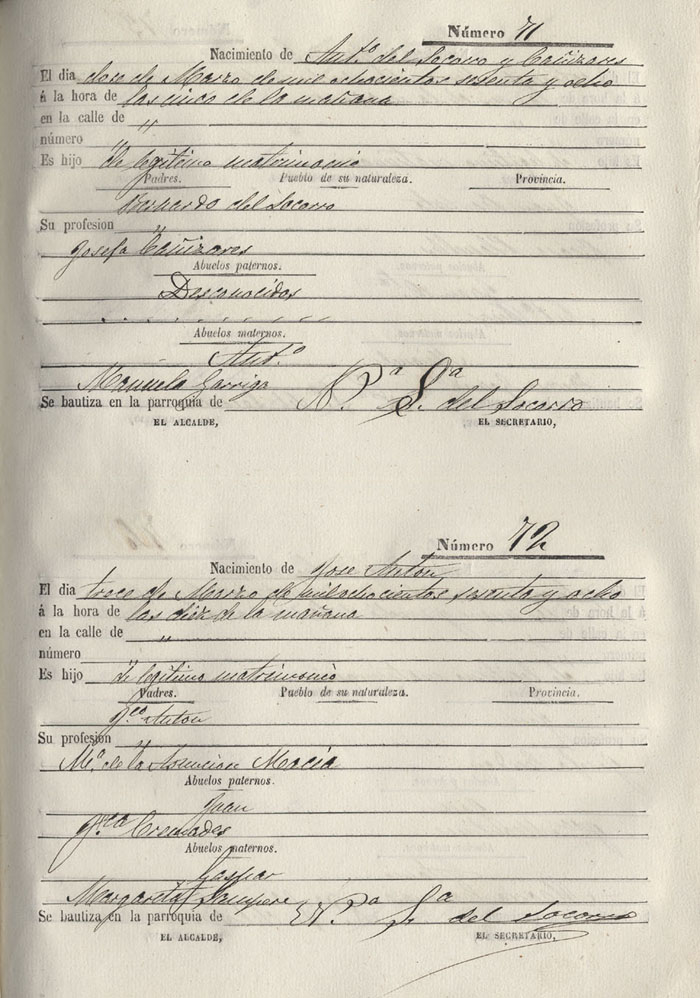 Número 71
Nacimiento de Antº del Socorro y Cañizares
El dia doce de Marzo de mil ochocientos sesenta y ocho
á la hora de las cinco de la mañana
en la calle de "
número
Es hijo de legitimo matrimonio
Padres. Pueblo de su naturaleza. Provincia.
Bernardo del Socorro
Su profesion "
Josefa Cañizares
Abuelos paternos.
Desconocidos
Abuelos maternos.
Antº
Manuela Garriga
Se bautiza en la parroquia de Nª Sª del Socorro
EL ALCALDE, EL SECRETARIO,
Número 72
Nacimiento de Jose Anton
El dia trece de Marzo de mil ochocientos sesenta y ocho
á la hora de las diez de la mañana
en la calle de "
número
Es hijo de legitimo matrimonio
Padres. Pueblo de su naturaleza. Provincia.
Anton
Su profesion "
Mª de la Asuncion Macia
Abuelos paternos.
Juan
Cremades
Abuelos maternos.
Gaspar
Margarita Sempere
Se bautiza en la parroquia de Nª Sª del Socorro
EL ALCALDE, EL SECRETARIO,